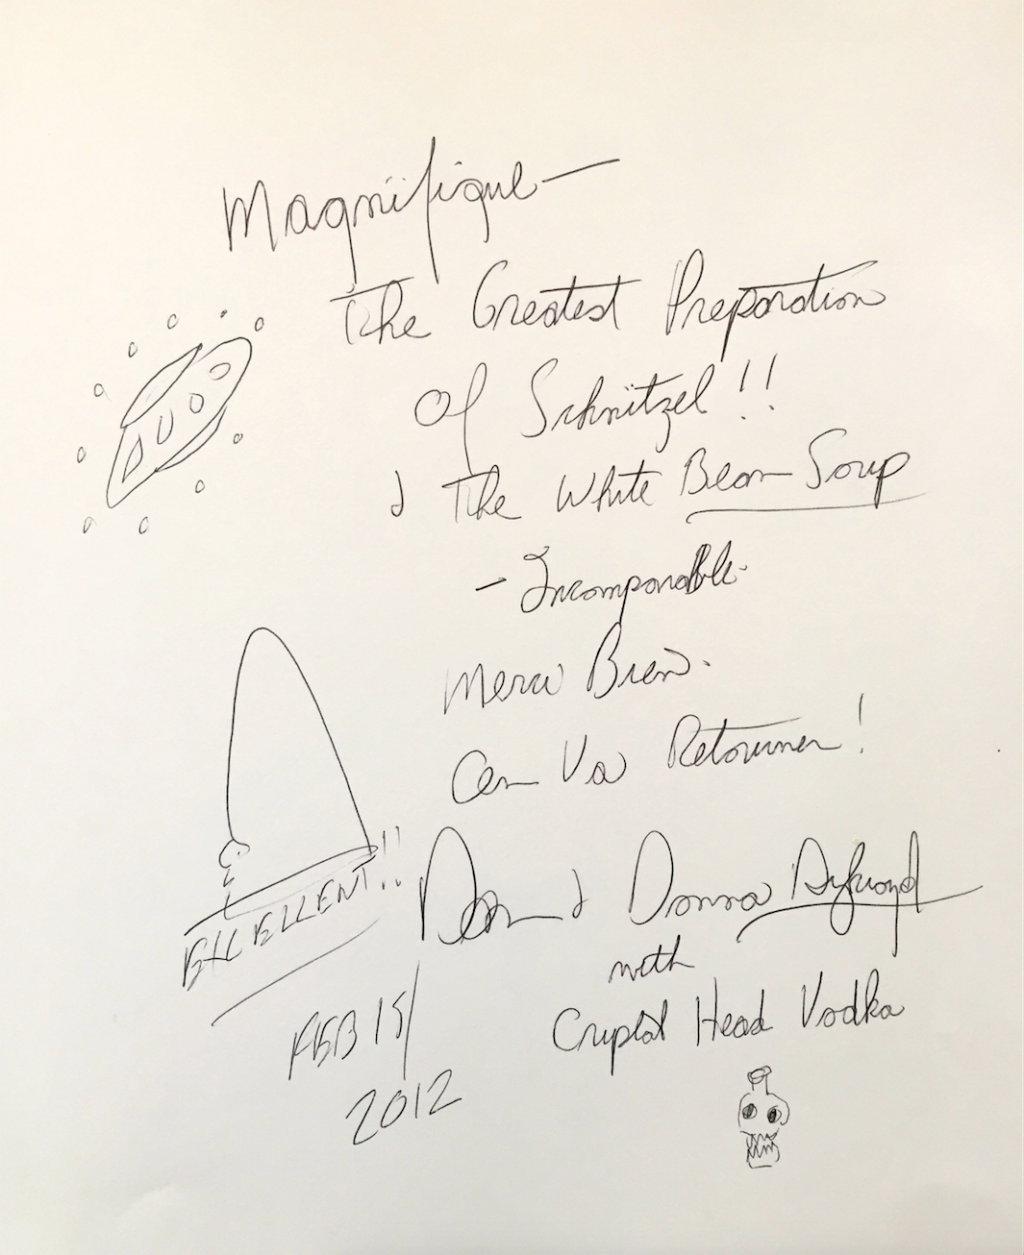 Magnifique —
The Greatest Preparation
Of Schnitzel!!
& The White Bean Soup
- Incomparable.
Merci Bien.
Va Retourner!
EXCELLENT!!
Dan & Donna Aykroyd
with
Crystal Head Vodka
FEB 15/
2012